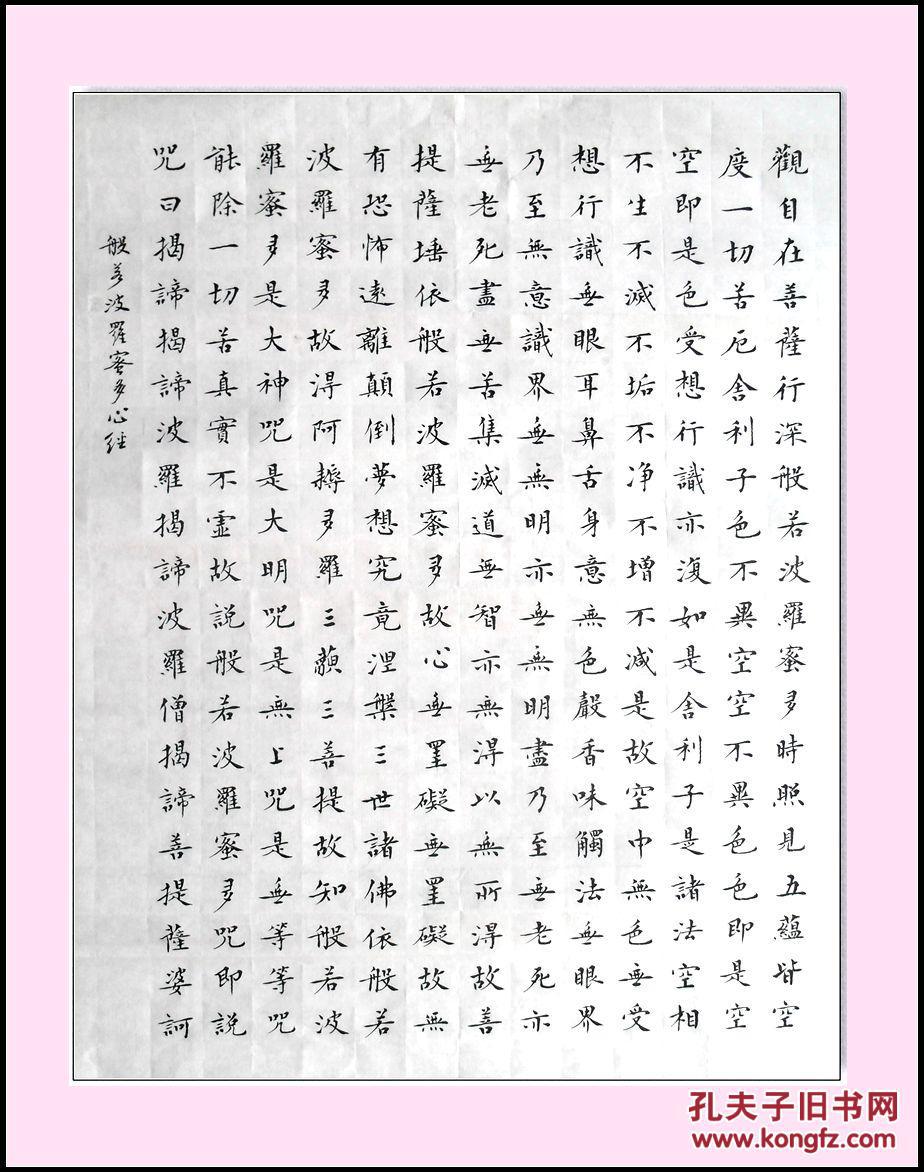 觀自在善薩行深般若波羅蜜多時照見五蘊皆空
度一切苦厄舍利子色不異空空不異色色即是空
空即是色受想行識亦復如是舍利子是諸法空相
不生不滅不垢不净不增不减是故空中無色無受
想行識無眼耳鼻舌身意無色聲香味觸法無眼界
乃至無意識界無無明亦無無明盡乃至無老死亦
無老死盡無苦集滅道無智亦無得以無所得故善
提薩埵依般若波羅蜜多故心無罣礙無罣礙故無
有恐怖遠離顛倒夢想究竟涅槃三世諸佛依般若
波羅蜜多故得阿耨多羅三藐三善提故知般若波
羅蜜多是大神咒是大明咒是無上咒是無等等咒
能除一切苦真實不虛故說般若波羅蜜多咒即說
咒曰揭諦揭諦波羅揭諦波羅僧揭諦善提薩婆訶
般若波羅蜜多心經
孔夫子旧书网
www.kongfz.com